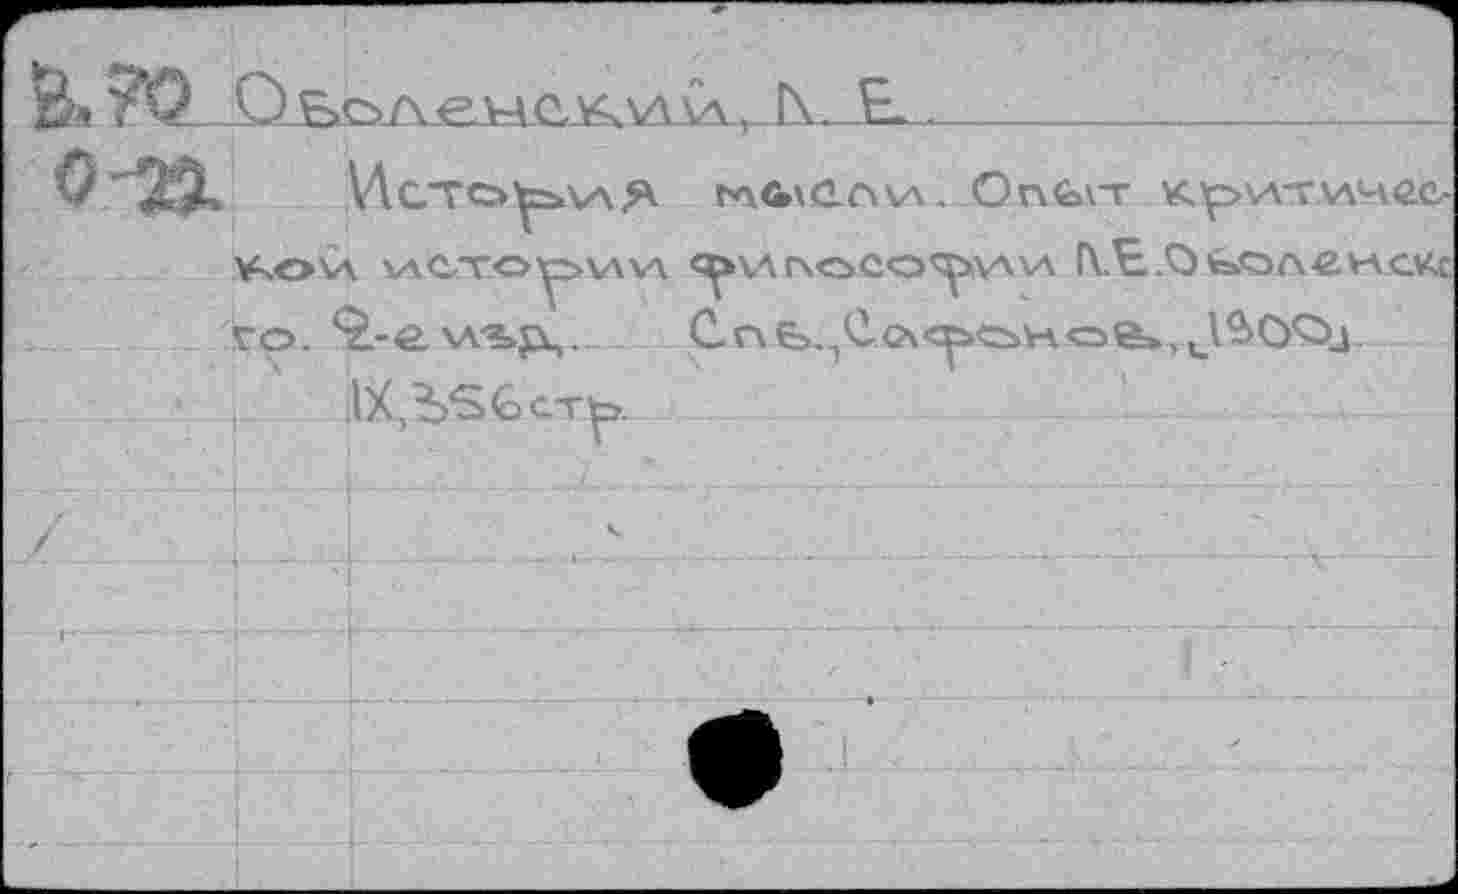 В.70 Оболенский, Л. Е.
О-22 История мысли. Опыт критичес-
кой истории философии Л.Е.Оболенско
го. 2-е изд. Спб., Сафонов, [1900]
IX, 356 стр.